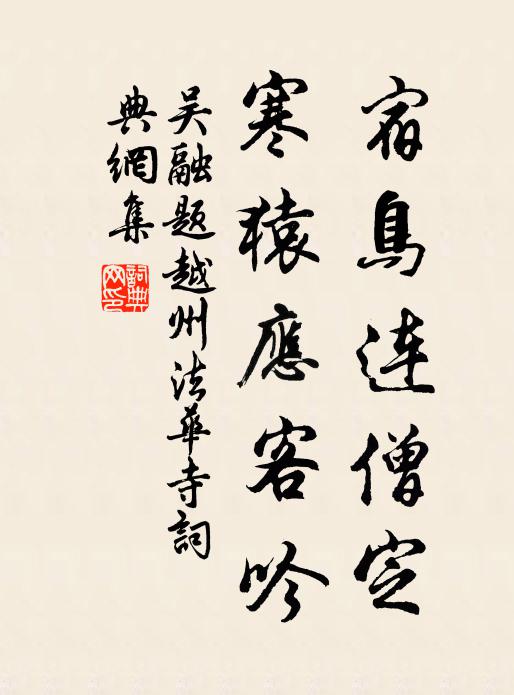 宿鳥連僧定
寒猿應客吟
吴融题越州法華寺詞
典網集
詞典網印